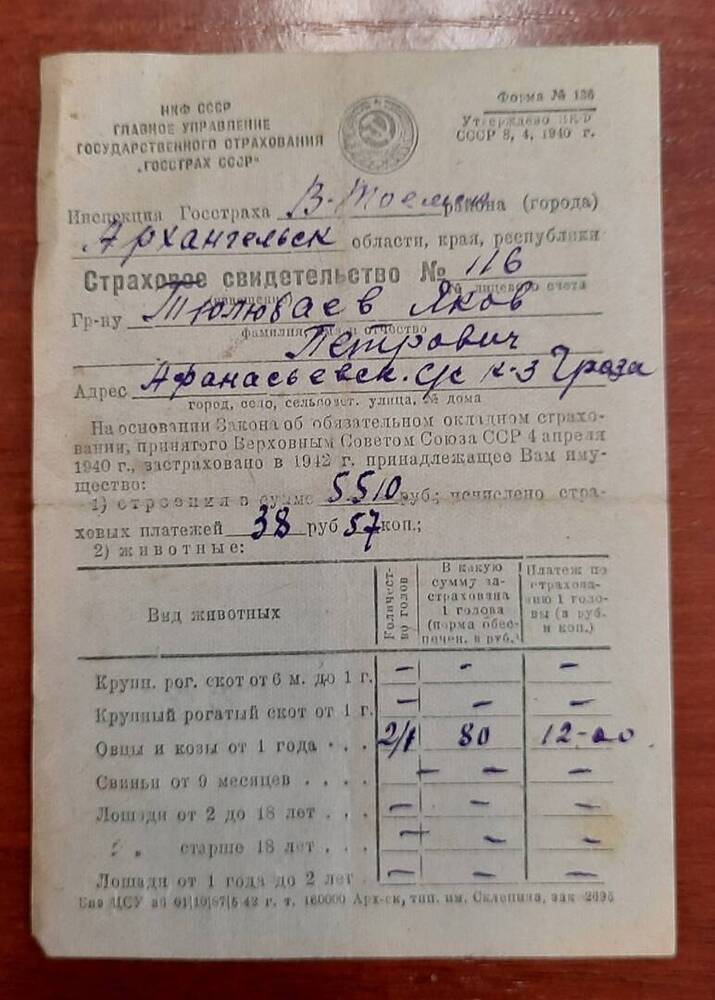 НКФ СССР
ГЛАВНОЕ УПРАВЛЕНИЕ
ГОСУДАРСТВЕННОГО СТРАХОВАНИЯ
„ГОССТРАХ СССР“
Форма № 136
Утверждено НКФ
СССР 8, 4, 1940 г.
Инспекция Госстраха В-Тоемск района (города)
Архангельск области, края, республики
Страховое свидетельство № 116
№ лицевого счета
Гр-ну Тюлюбаев Яков
фамилия, имя и отчество
Петрович
Адрес Афанасьевск. с/с к-з Гроза
город, село, сельсовет, улица, № дома
На основании Закона об обязательном окладном страхо-
вании, принятого Верховным Советом Союза ССР 4 апреля
1940 г., застраховано в 1942 г. принадлежащее Вам иму-
щество:
1) строения в сумме 5510 руб.; исчислено стра-
ховых платежей 38 руб 57 коп.;
2) животные:
Вид животных
Количест-
во голов
В какую
сумму за-
страхована
1 голова
(норма обес-
печен. в руб.)
Платеж по
страхова-
нию 1 голо-
вы (в руб.
и коп.)
Крупн. рог. скот от 6 м. до 1 г. — - —
Крупный рогатый скот от 1 г. — — —
Овцы и козы от 1 года . . . 2/1 80 12-00
Свиньи от 9 месяцев . . . . — — —
Лошади от 2 до 18 лет . . . — — —
„ старше 18 лет . . . — — —
Лошади от 1 года до 2 лет . — — —
т. 160000 Арх-ск, тип. им. Склепина, зак 2695